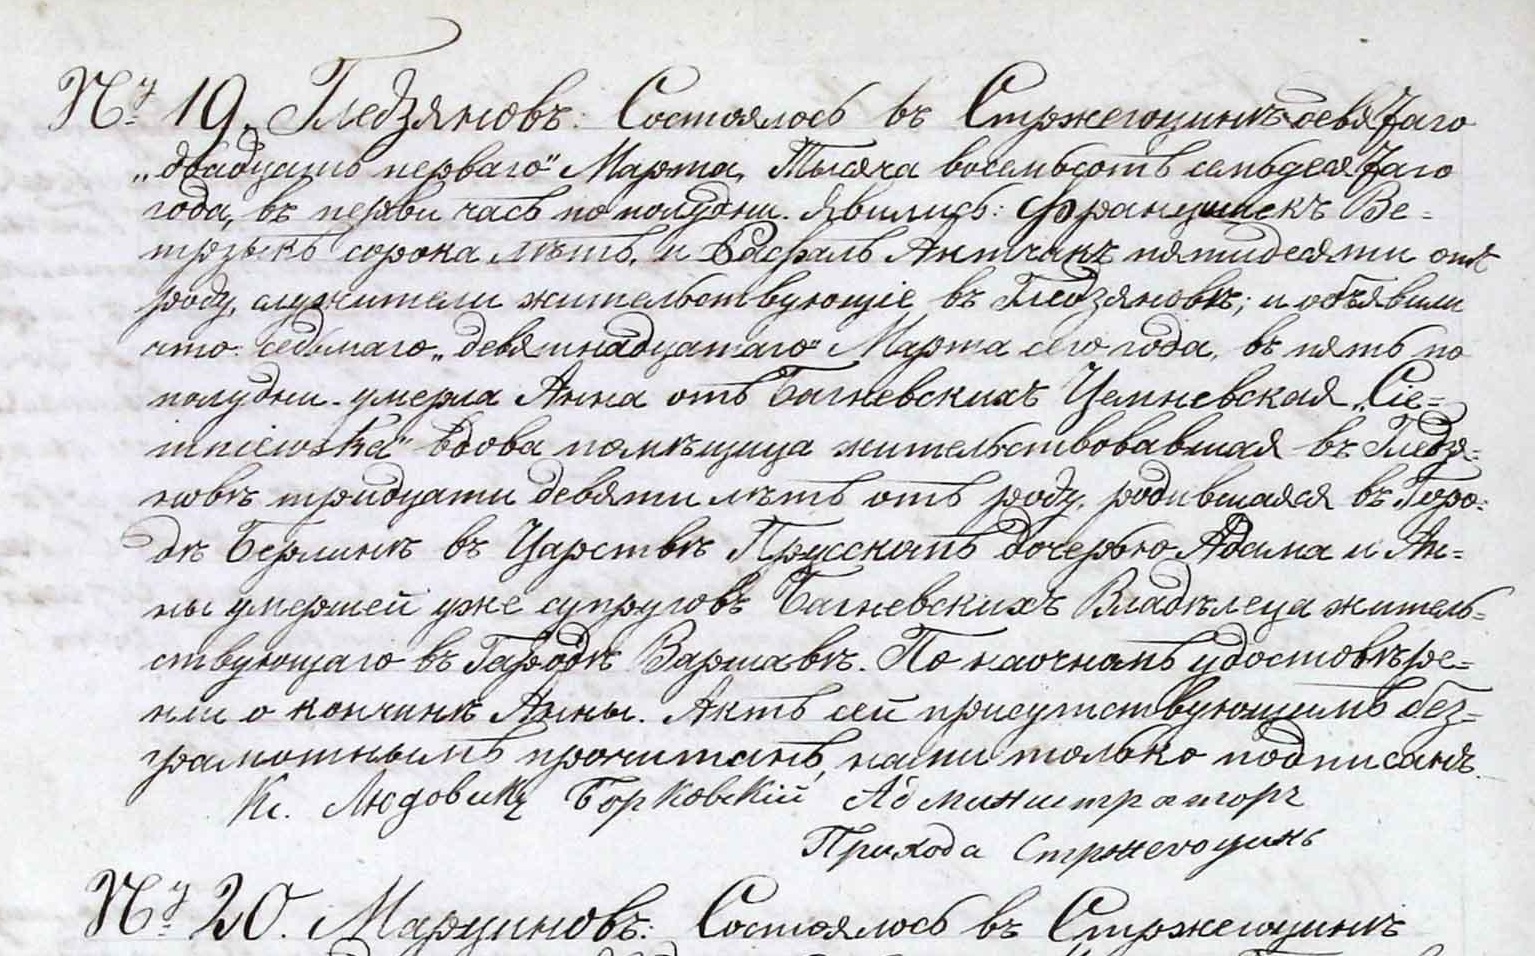 № 19. Гледзяновъ. Состоялось въ Стржегоцинѣ девятаго
„двадцать перваго" Марта, Тысяча восемьсотъ семьдесятаго
года, въ первы часъ по полудни. Явились: Францишекъ Ве=
трзыкъ сорока лѣтъ, и Рафаль Антчакъ пятидесяти отъ
роду, служители жительствующіе въ Гледзяновѣ; и объявили
что: седьмаго „девятнадцатаго" Марта сего года, въ пять по
полудни умерла Анна отъ Багневскихъ Цемневская „Cie=
mniewska" вдова помѣщица жительствовавшая въ Гледзя=
новѣ тридцати девяти лѣтъ отъ роду, родившаяся въ Горо=
дѣ Берлинѣ въ Царствѣ Прусскомъ дочерью Адама и Ан=
ны умершей уже супруговъ Багневскихъ Владѣлеца житель=
ствующаго въ Городѣ Варшавѣ. По наочномъ удостовѣре=
нии о кончинѣ Анны. Актъ сей присутствующимъ без=
грамотнымъ прочитанъ, нами только подписанъ.
Кс. Людовикъ Борковскій Администраторъ
Прихода Стржегоцинъ
№ 20. Марциновъ: Состоялось въ Стржегоцинѣ